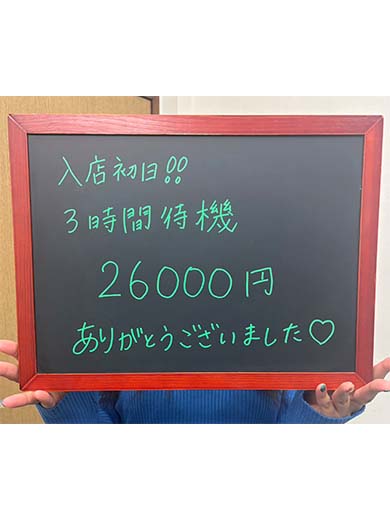 入店初日!!
3時間待機
26000円
ありがとうございました♡